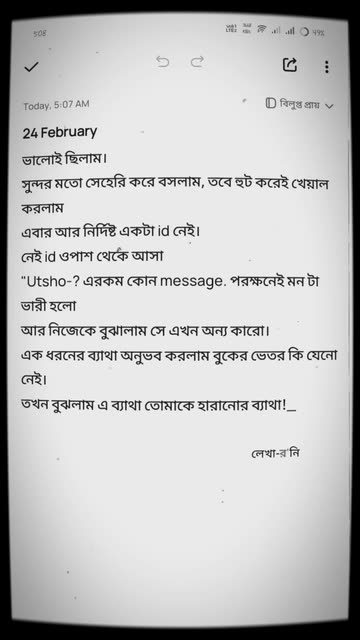 5:08
49%
Today, 5:07 AM
বিলুপ্ত প্রায়
24 February
ভালোই ছিলাম।
সুন্দর মতো সেহেরি করে বসলাম, তবে হুট করেই খেয়াল
করলাম
এবার আর নির্দিষ্ট একটা id নেই।
নেই id ওপাশ থেকে আসা
"Utsho-? এরকম কোন message. পরক্ষনেই মন টা
ভারী হলো
আর নিজেকে বুঝালাম সে এখন অন্য কারো।
এক ধরনের ব্যাথা অনুভব করলাম বুকের ভেতর কি যেনো
নেই।
তখন বুঝলাম এ ব্যাথা তোমাকে হারানোর ব্যাথা!_
লেখা-র'নি